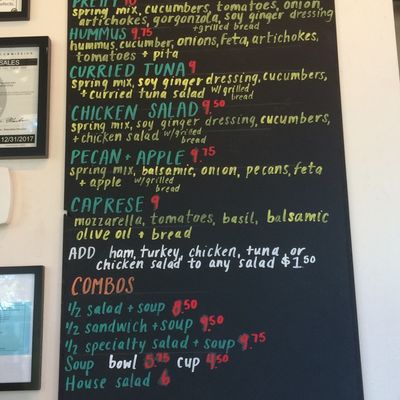 10
spring mix, cucumbers, tomatoes, onion,
artichokes, gorgonzola, soy ginger dressing
+grilled bread
HUMMUS 9.75
hummus, cucumber, onions, feta, artichokes,
tomatoes + pita
CURRIED TUNA 9
spring mix, soy ginger dressing, cucumbers,
+ curried tuna salad w/grilled bread
CHICKEN SALAD 9.50
spring mix, soy ginger dressing, cucumbers,
+ chicken salad w/grilled bread
PECAN + APPLE 9.75
spring mix, balsamic, onion, pecans, feta
+ apple w/grilled bread
CAPRESE 9
mozzarella, tomatoes, basil, balsamic
olive oil + bread
ADD ham, turkey, chicken, tuna, or
chicken salad to any salad $1.50
COMBOS
1/2 salad + soup 8.50
1/2 sandwich + soup 9.50
1/2 specialty salad + soup 9.75
Soup bowl 5.75 cup 4.50
House salad 6
SALES
12/31/2017